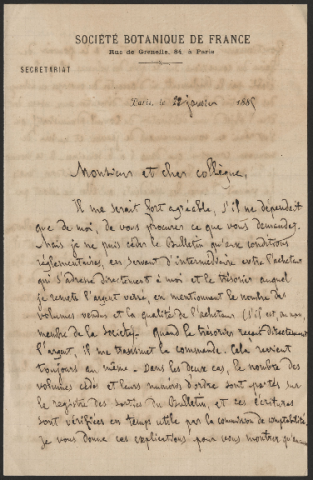 SOCIÉTÉ BOTANIQUE DE FRANCE
Rue de Grenelle, 84, à Paris
SECRÉTARIAT
Paris, le 22 janvier 1885
Monsieur et cher collègue,
Il me serait fort agréable, s'il ne dépendait
que de moi, de vous procurer ce que vous demandez.
Mais je ne puis céder le Bulletin qu'aux conditions
réglementaires, en servant d'intermédiaire entre l'acheteur
qui s'adresse directement à moi et le trésorier auquel
je remets l'argent versé, en mentionnant le nombre des
volumes vendus et la qualité de l'acheteur (s'il est, ou non,
membre de la Société). Quand le trésorier reçoit directement
l'argent, il me transmet la commande. Cela revient
toujours au même. Dans les deux cas, le nombre des
volumes cédés et leurs numéros d'ordre sont portés sur
le registre des sorties du Bulletin, et ces écritures
sont vérifiées en temps utile par la commission de comptabilité.
Je vous donne ces explications pour vous montrer qu'en